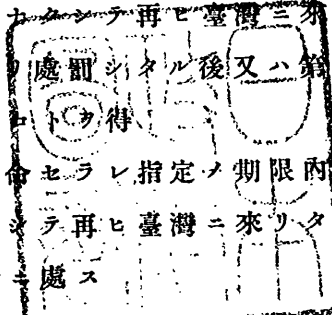 ナクシテ再ヒ臺灣ニ來
リ處罰シタル後又ハ第
コトヲ得
命セラレ指定ノ期限內
シテ再ヒ臺灣ニ來リタ
ニ處ス